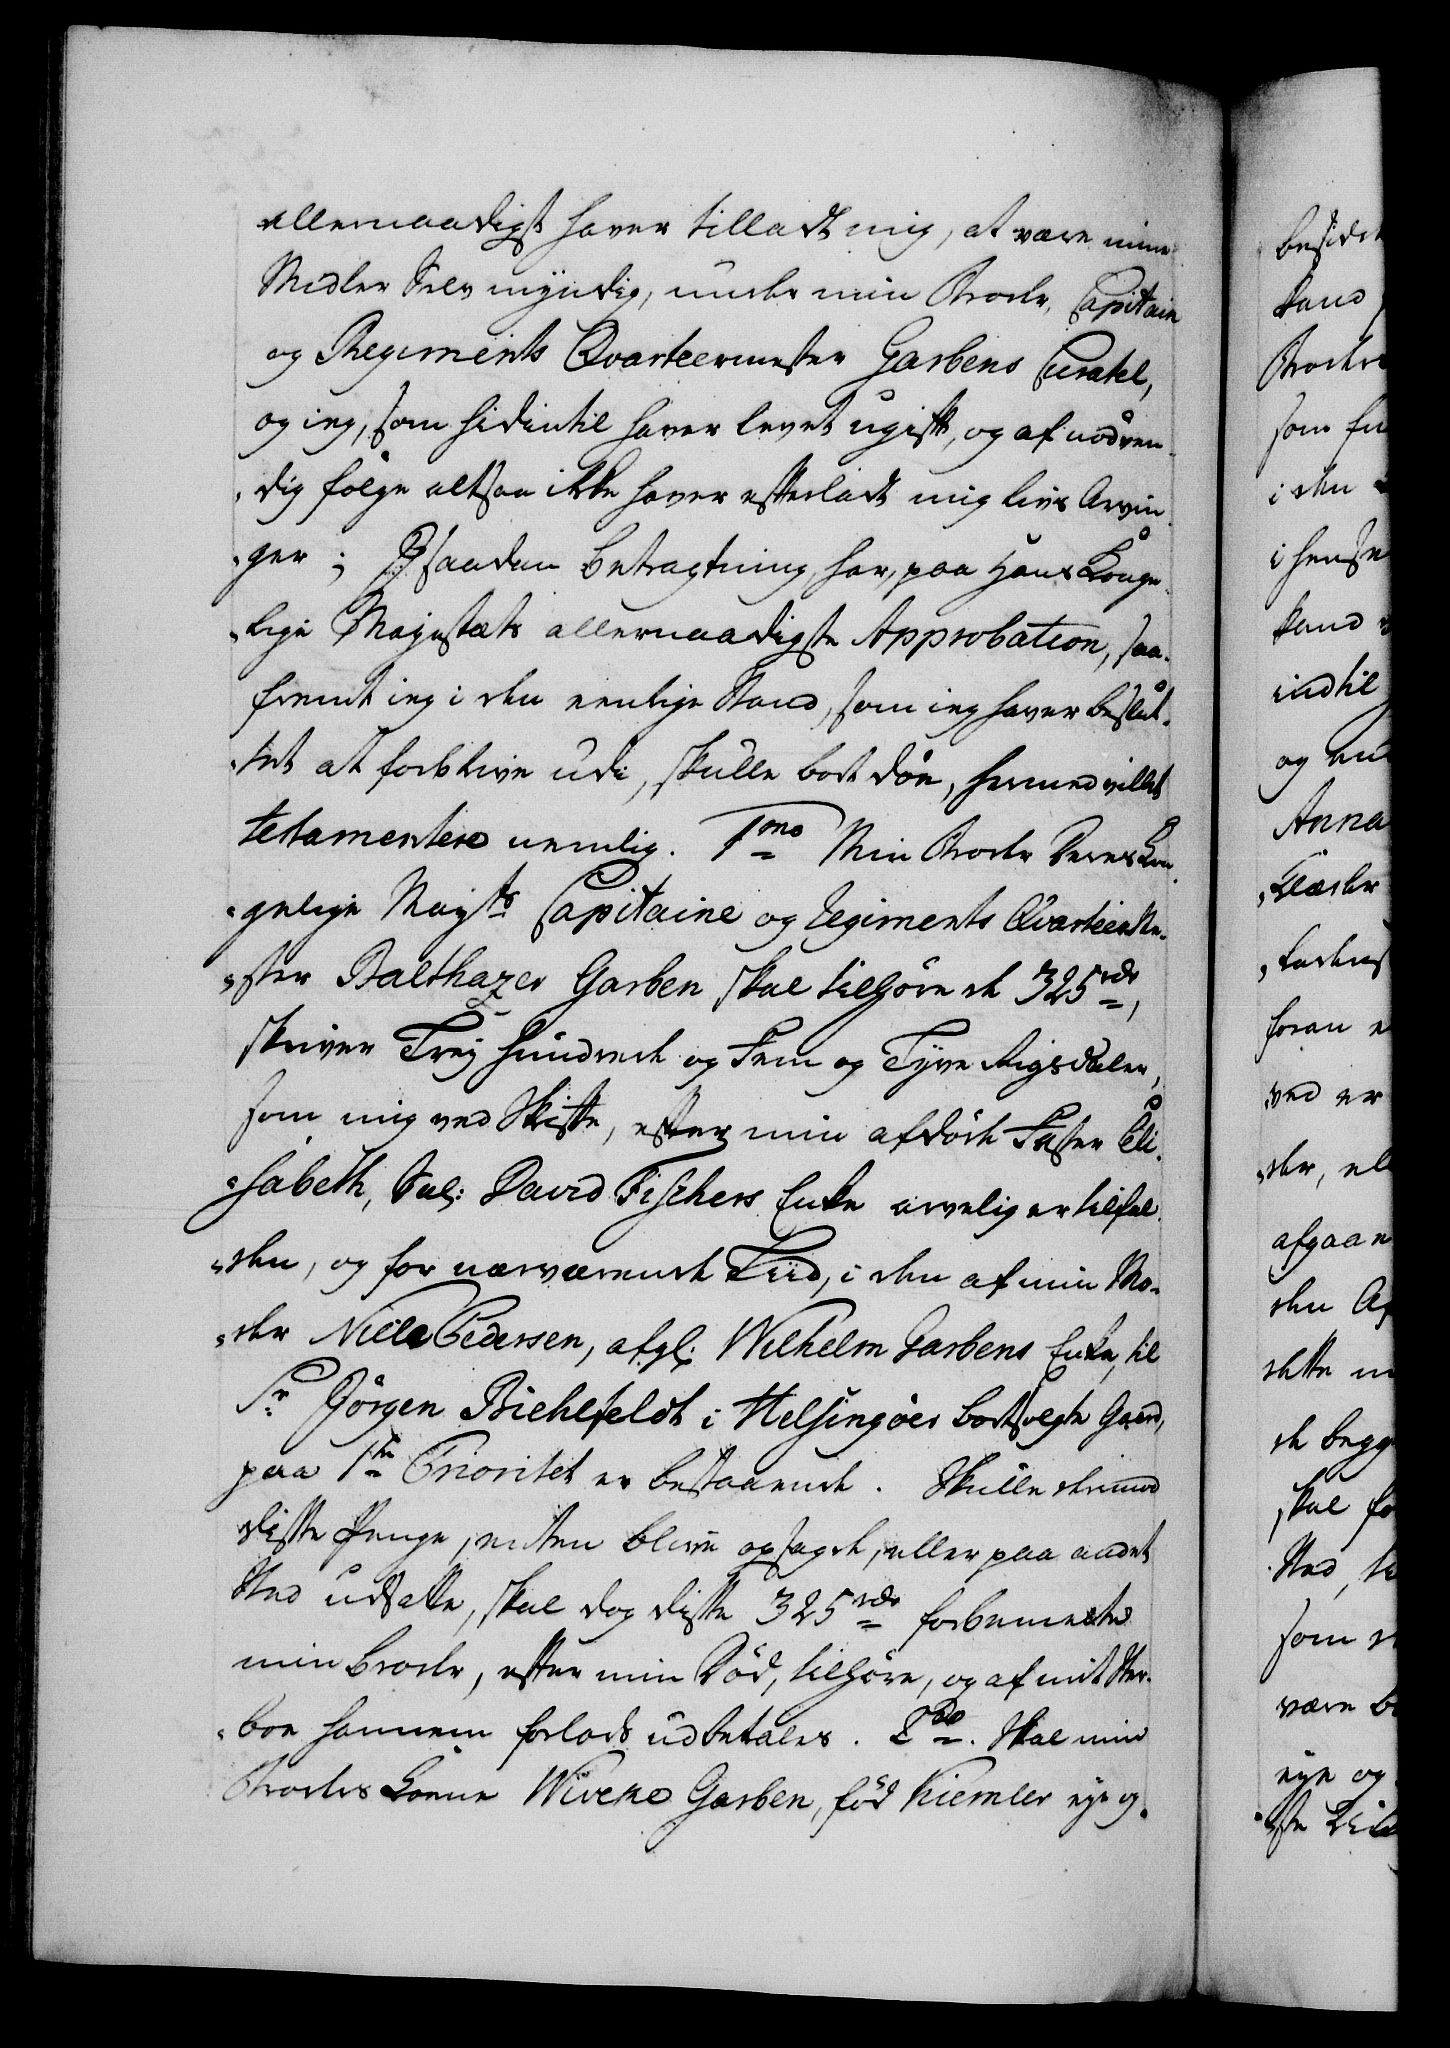 allernaadigst haver tilladt mig, at være mine
Midler Selv myndig, under min Broder, Capitain
og Regiments Qvarteermester Garbens Curatel,
og ieg, som hidintil haver levet ugift, og af nødven-
dig følge altsaa ikke haver efterladt mig livs Arvin-
ger; I saadan betragtning, har, paa Hans Konge-
lige Majestæts allernaadigste Approbation, saa-
fremt ieg i den eenlige Stand, som ieg haver beslut-
tet at forblive udi, skulle bort døe, hermed villet
testamentere nemlig. 1mo Min Broder Deres Kon-
gelige Mayts Capitaine og Regiments Qvarteer Me-
ster Balthazer Garben skal tilhøre de 325 rdr,
skriver Trej hundrede og Fem og Tyve Rigsdaler,
som mig ved Skifte, efter min afdøde Faster Eli-
sabeth, Sal: David Fischers Enke arvelig er tilfal-
den, og for nærværende Tiid, i den af min Mo-
der Nille Pedersen, afgl: Wilhelm Garbens Enke, til
Sr Jørgen Biehlfeldt i Helsingøer bortsolgte Gaard,
paa 1te Prioritet er bestaaende. Skulle derimod
disse Penge, enten blive opsagde, eller paa andet
Sted udsatte, skal dog disse 325 rdr forbemeldte
min broder, efter min Død, tilhøre, og af mit Ster-
boe hannem forlods udbetales. 2do. Skal min
Broders Kone Wiveke Garben, fød Kiemler eye og
besidde
kand
Broders
som
i den
kand
indtil
og
Anna
Klæder
foran
ved er
der,
afgaae
den
dette
de begge
skal
Sted,
som
være
eye og